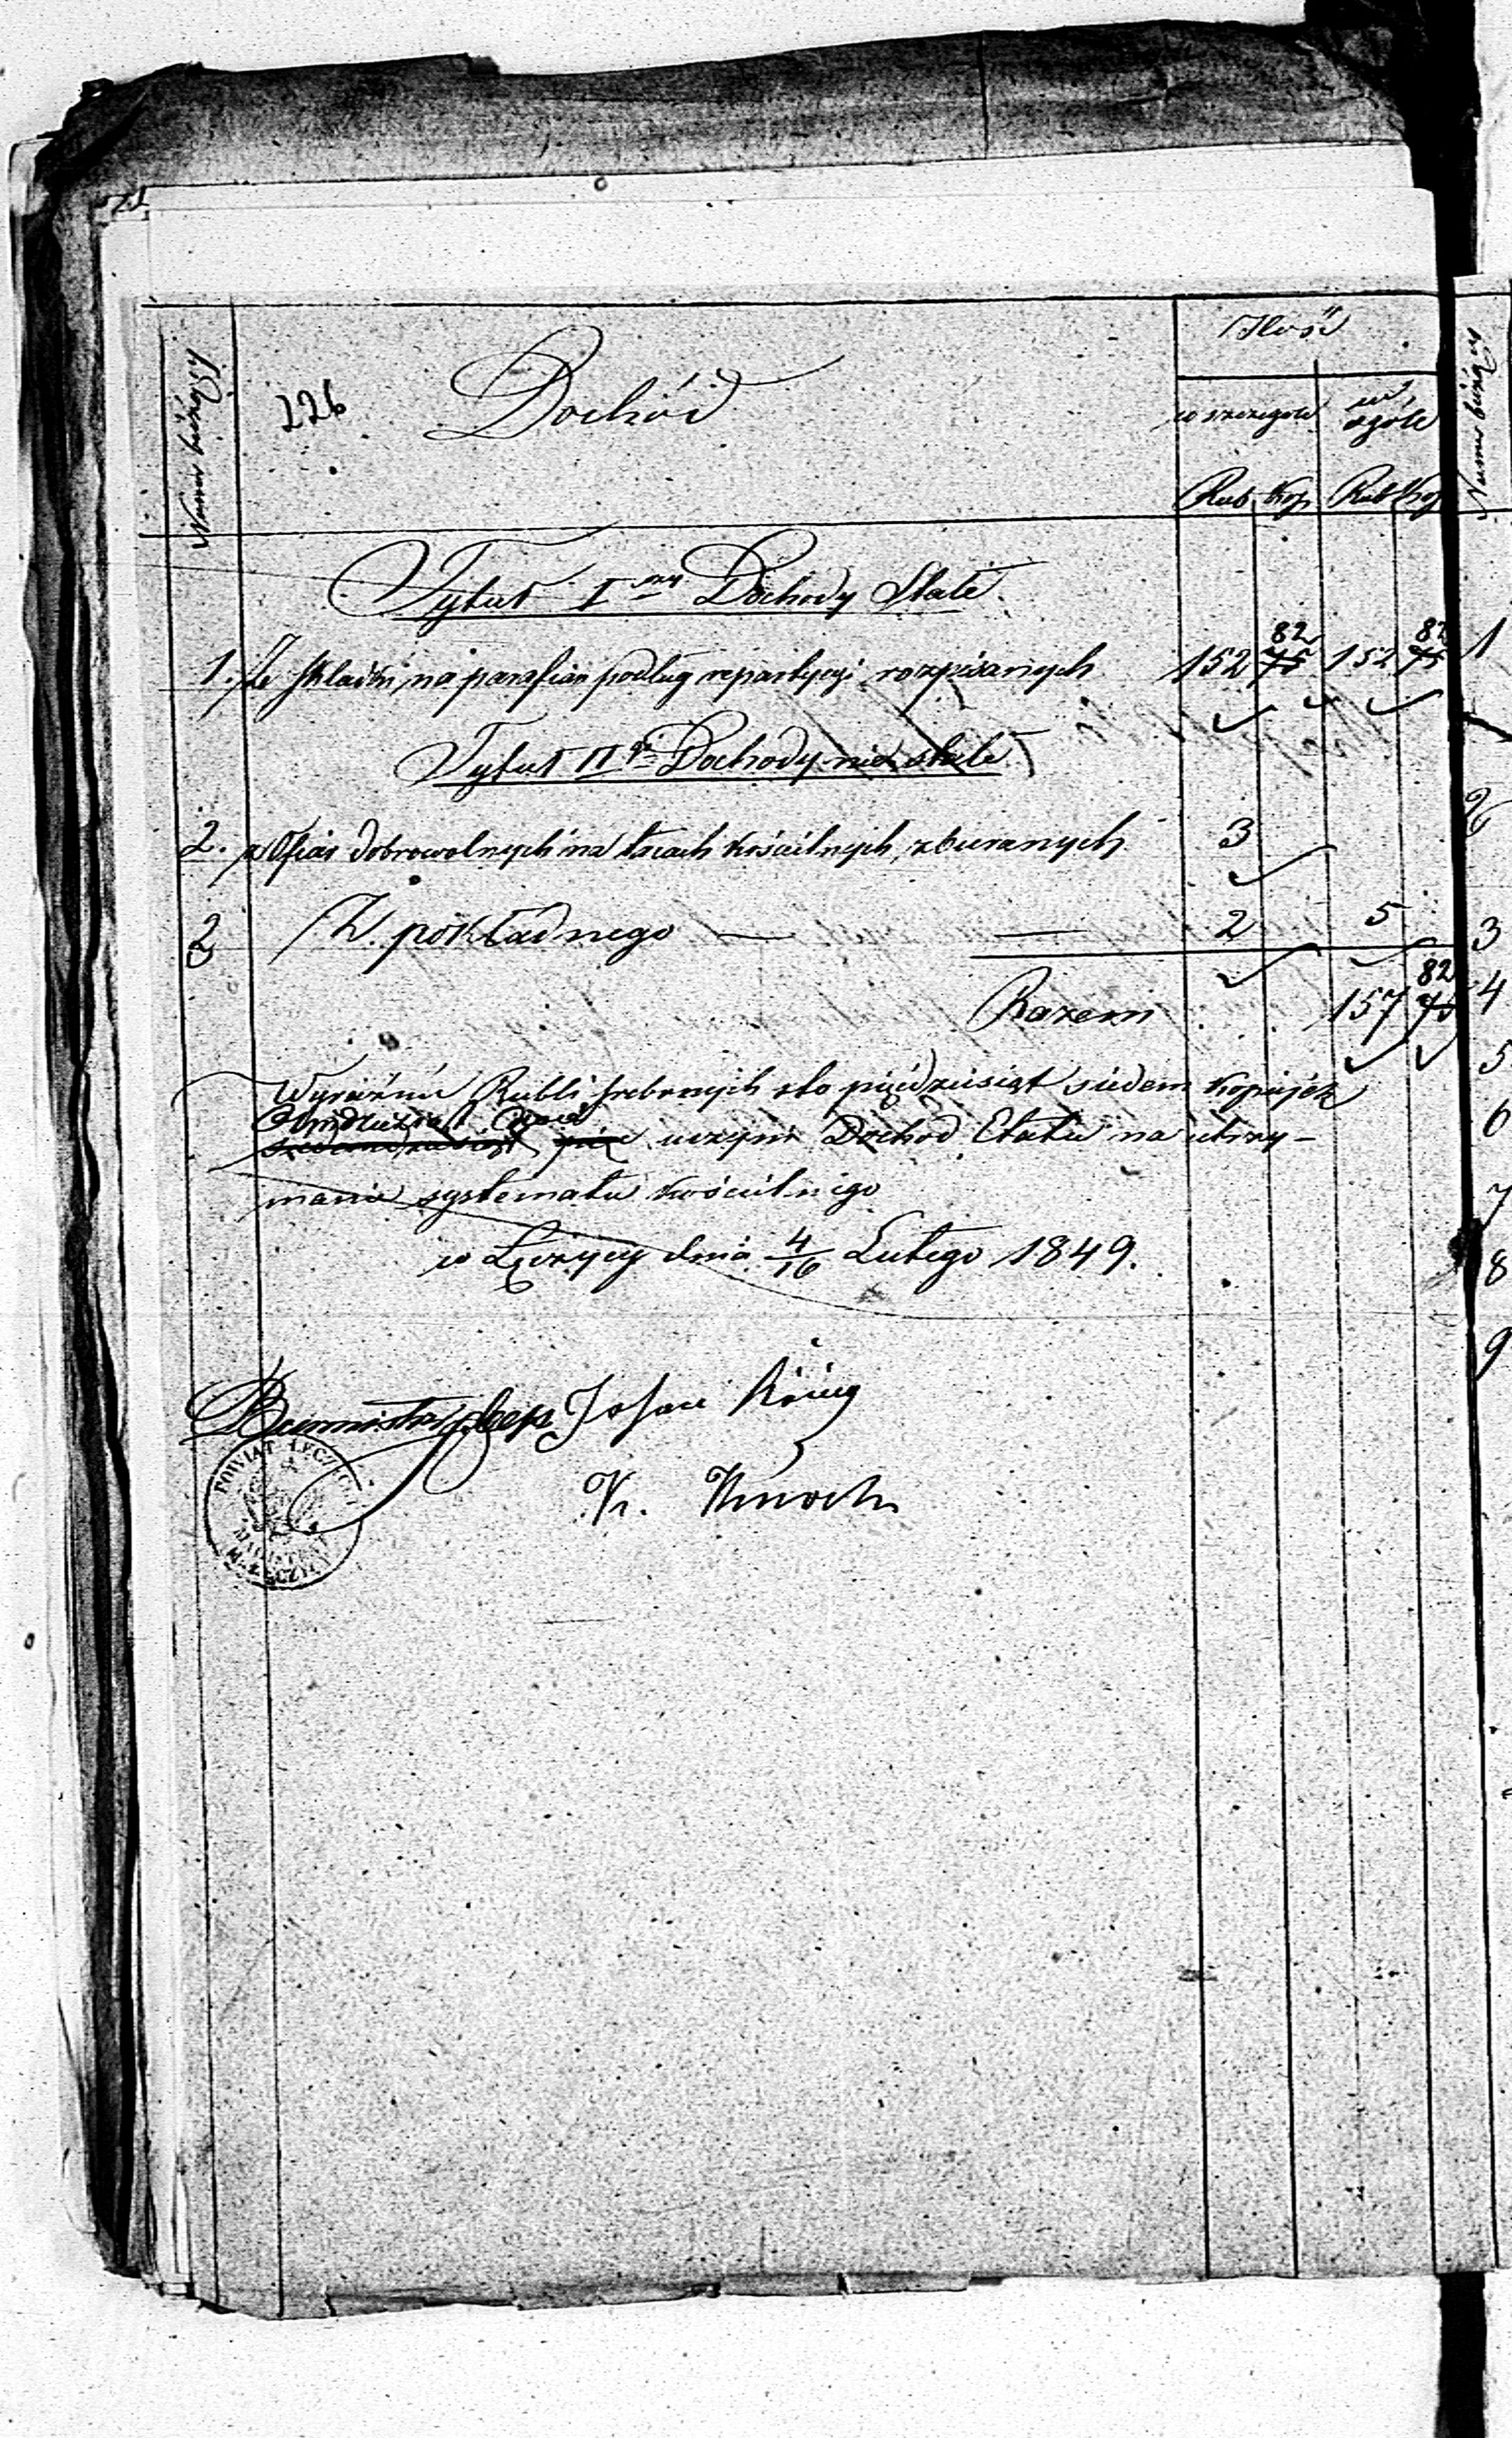 Numer bieżący
226
Dochód
Ilość
w szczególe
w ogóle
Rub Kop Rub Kop
Tytuł I szy Dochody Stałe
1. Ze składki na parafian podług repartycyi rozpisanych 152 82 75 152 82 75
Tytuł II gi Dochody nie stałe
2. z Ofiar dobrowolnych na tacach kościelnych zbieranych 3
3 Z pokładnego — — 2 5
Razem 157 82 75
Wyraźnie Rubli srebrnych sto pięćdziesiąt siedem kopiejek
Ośmdziesiąt dwie
siedemdziesiąt pięć uczyni Dochód Etatu na utrzy-
manie systematu kościelnego
w Łęczycy dnia 4/16 Lutego 1849.
Burmistrz Johan König
K. Knoch
POWIAT ŁĘCZYCKI
Numer bieżący
1
2
3
4
5
6
7
8
9